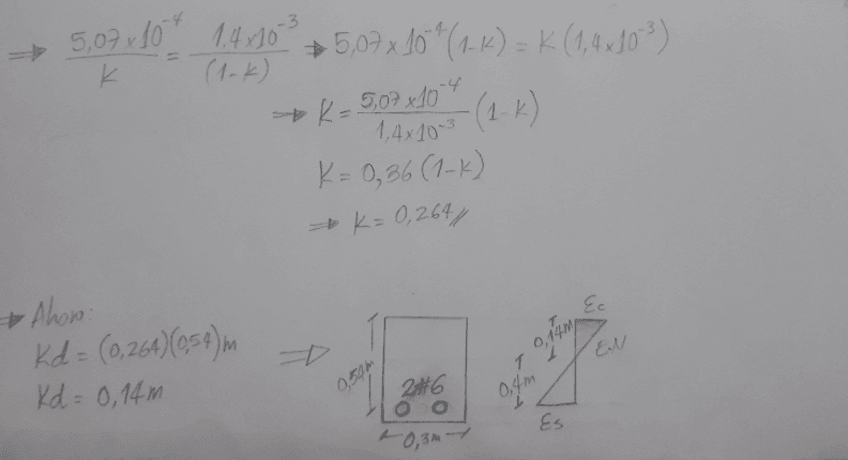 ⇒ 5,07x10⁻⁴/K = 1,4x10⁻³/(1-K) → 5,07x10⁻⁴(1-K) = K(1,4x10⁻³)
⇒ K = 5,07x10⁻⁴/1,4x10⁻³ (1-K)
K = 0,36(1-K)
⇒ K = 0,264//
⇒ Ahora:
Kd = (0,264)(0,54)m ⇒
Kd = 0,14m
0,54m
2#6
0,3m
εc
0,14m
E.N
0,4m
εs